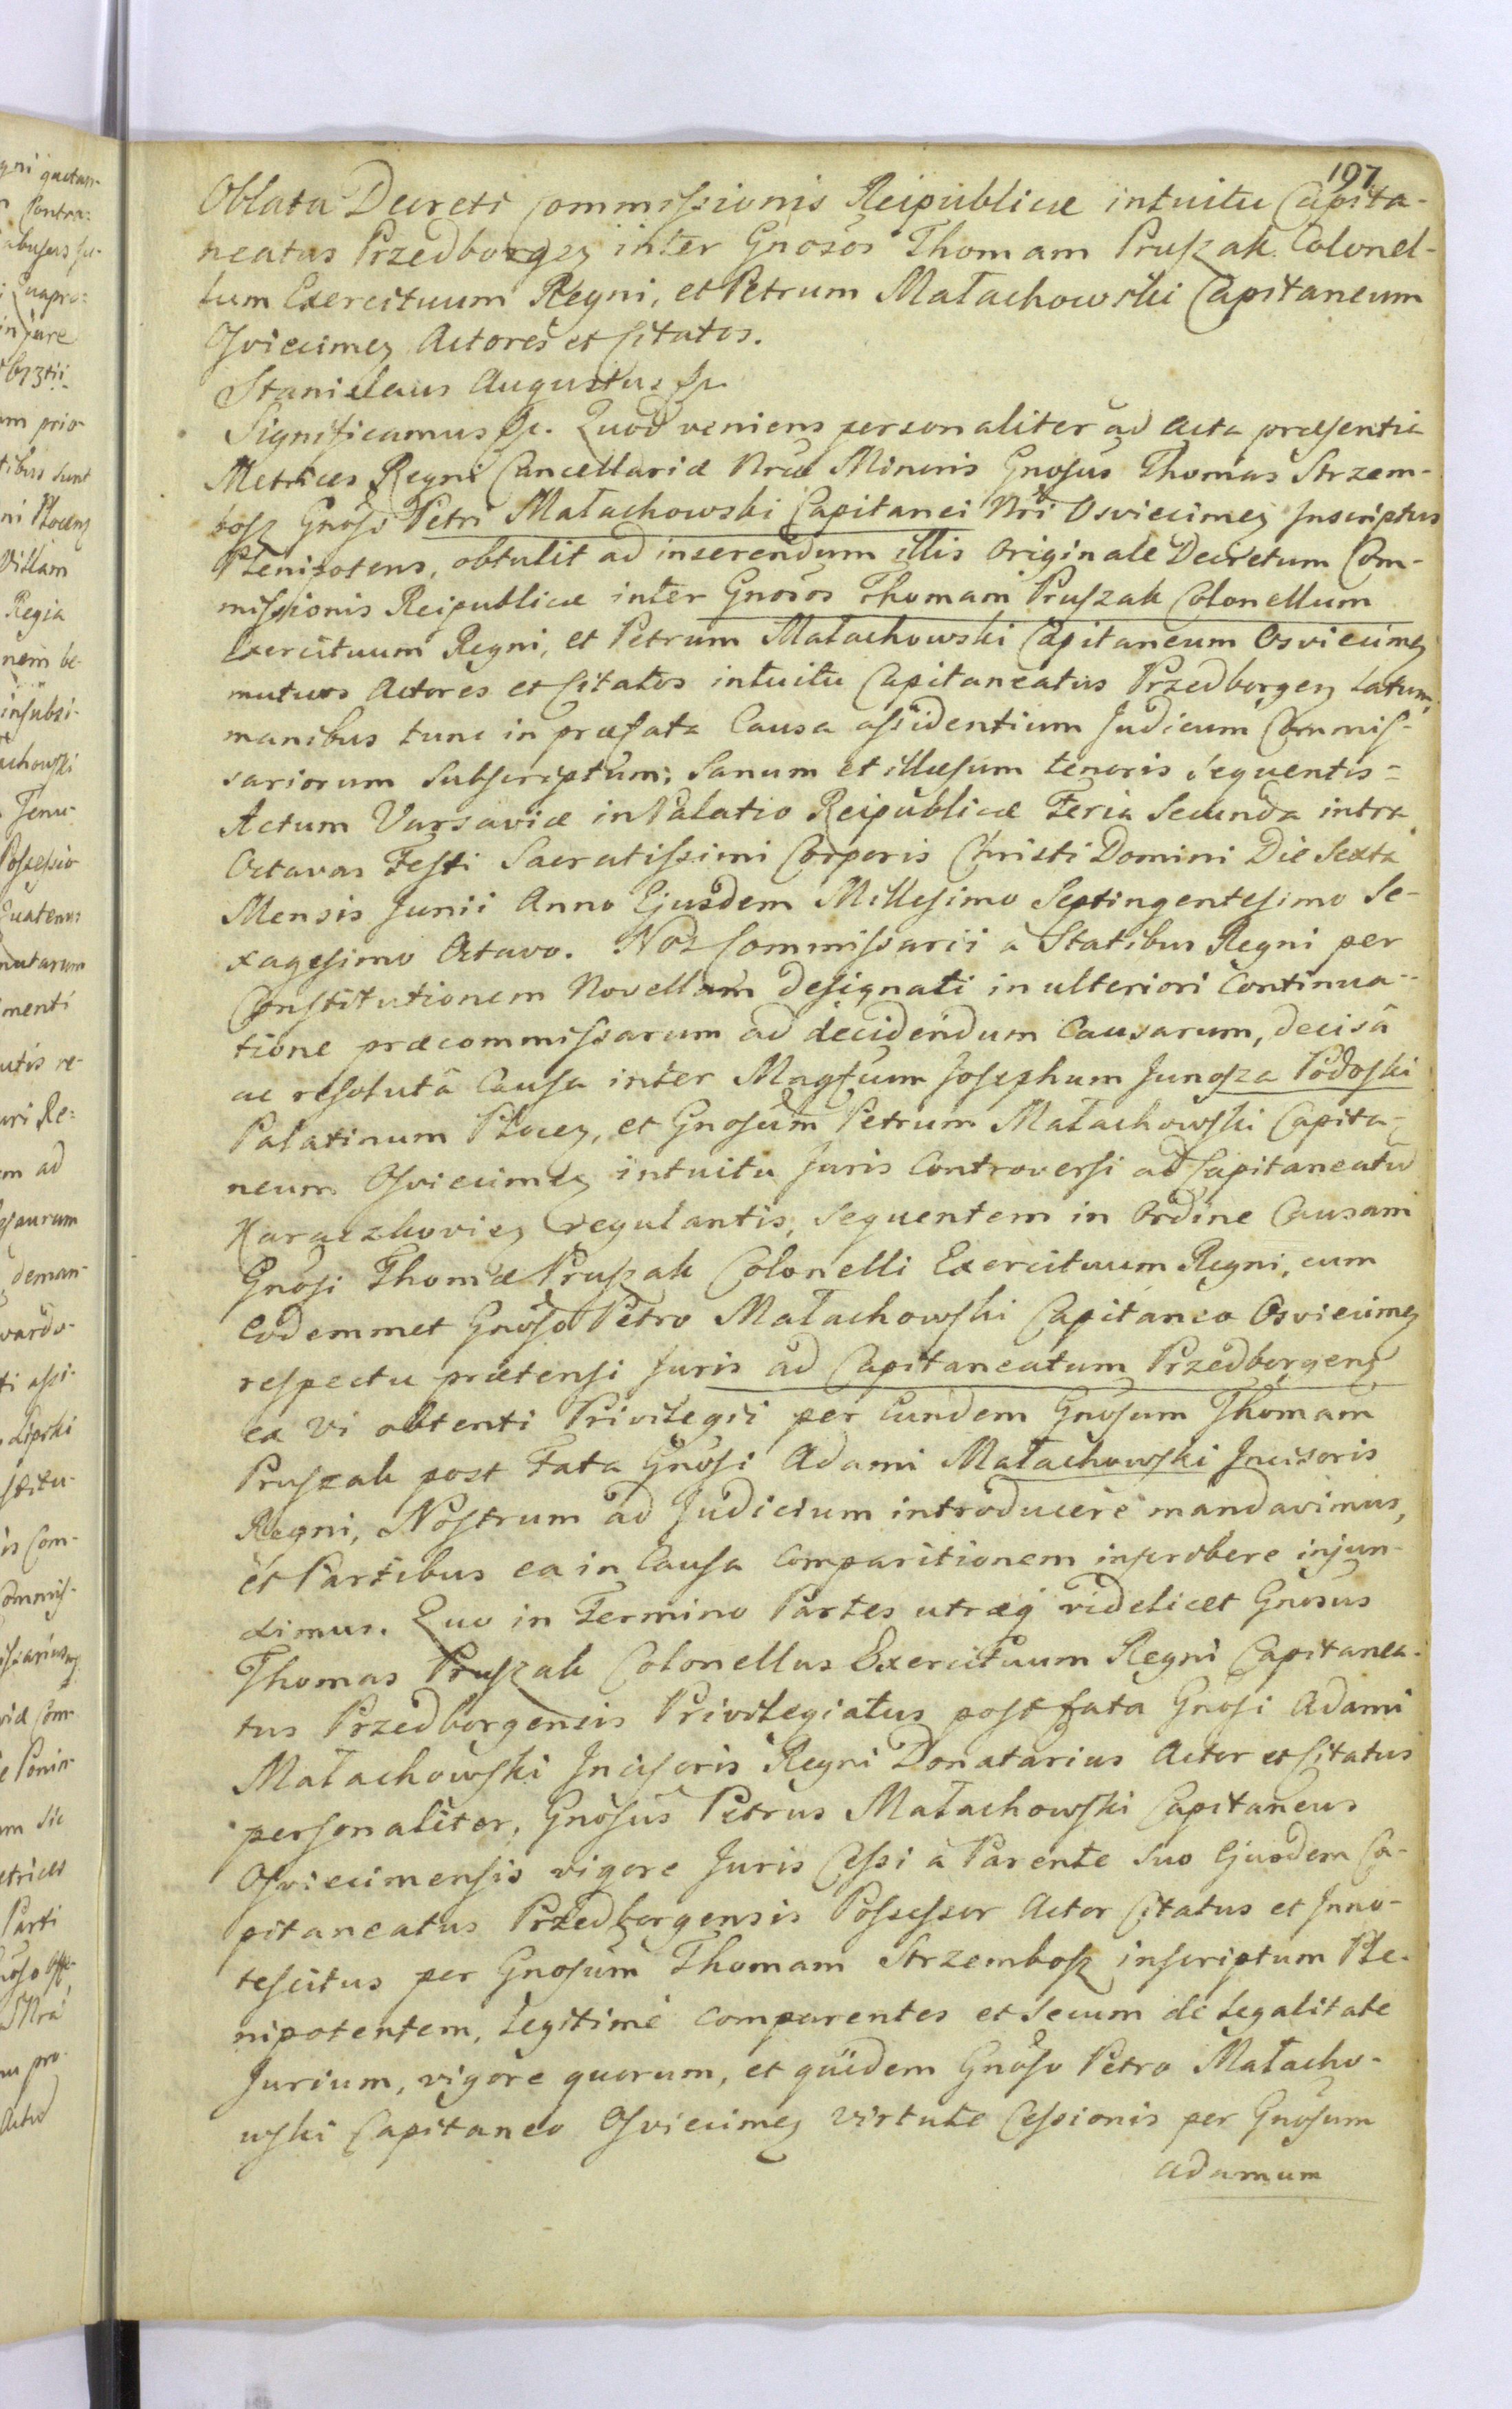 197
Oblata Decreti Commissionis Reipublicæ intuitu Capita-
neatus Przedborgen inter Gnosos Thomam Pruszak Colonel-
lum Exercituum Regni, et Petrum Małachowski Capitaneum
Osviecimen Actores et Citatos.
Stanislaus Augustus &c.
Significamus &c. Quod veniens personaliter ad Acta præsentia
Metrices Regni Cancellariæ Nræ Minoris Gnosus Thomas Strzem-
bosz Gnosi Petri Małachowski Capitanei Nri Osviecimen Inscriptus
Plenipotens, obtulit ad inserendum illis Originale Decretum Com-
missionis Reipublicæ inter Gnosos Thomam Pruszak Colonellum
Exercituum Regni, et Petrum Małachowski Capitaneum Osviecimen
mutuos Actores et Citatos intuitu Capitaneatus Przedborgen Latum,
manibus tunc in præfata Causa assidentium Judicum Commis-
sariorum subscriptum; Sanum et illæsum tenoris sequentis =
Actum Varsaviæ in Palatio Reipublicæ Feria Secunda intra
Octavas Festi Sacratissimi Corporis Christi Domini Die Sexta
Mensis Junii Anno Ejusdem Millesimo Septingentesimo Se-
xagesimo Octavo. Nos Commissarii a Statibus Regni per
Constitutionem Novellam designati in ulteriori Continua-
tione præcommissarum ad decidendum Causarum, decisâ
ac resolutâ Causa inter Mngfcum Josephum Junosza Podoski
Palatinum Płocen, et Gnosum Petrum Małachowski Capita-
neum Osviecimen intuitu Juris Controversi ad Capitaneatu
regulantis, sequentem in Ordine Causam
Gnosi Thomæ Pruszak Colonelli Exercituum Regni, cum
Eodemmet Gnoso Petro Małachowski Capitaneo Osviecimen
respectu prætensi Juris ad Capitaneatum Przedborgens
ex vi obtenti Privilegii per Eundem Gnosum Thomam
Pruszak post Fata Gnosi Adami Małachowski Incisoris
Regni, Nostrum ad Judicium introducere mandavimus,
et Partibus ea in Causa Comparitionem inscribere injun-
ximus. Quo in Termino Partes utræq videlicet Gnosus
Thomas Pruszak Colonellus Exercituum Regni Capitanea-
tus Przedborgensis Privilegiatus post fata Gnosi Adami
Małachowski Incisoris Regni Donatarius Actor et Citatus
personaliter, Gnosus Petrus Małachowski Capitaneus
Osviecimensis vigore Juris Cessi a Parente Suo Ejusdem Ca-
pitaneatus Przedborgensis Possessor Actor Citatus et Inno-
tescitus per Gnosum Thomam Strzembosz inscriptum Ple-
nipotentem, Legitime Comparentes et Secum de Legalitate
Jurium, vigore quorum, et quidem Gnoso Petro Małacho-
wski Capitaneo Osviecimen virtute Cessionis per Gnosum
Adamum